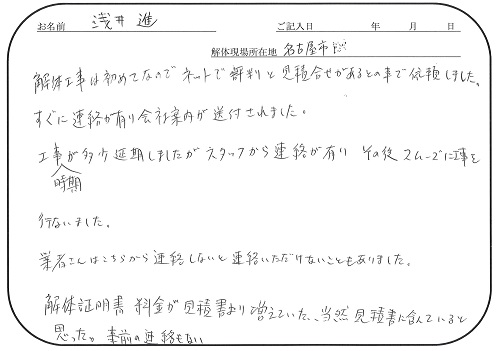 お名前 浅井 進 ご記入日 年 月 日
解体現場所在地 名古屋市
解体工事は初めてなのでネットで評判と見積合せがあるとの事で依頼しました。
すぐに連絡が有り会社案内が送付されました。
工事が多少延期しましたがスタッフから連絡が有り その後スムーズに工事を
時期
行ないました。
業者さんはこちらから連絡しないと連絡いただけないこともありました。
解体証明書 料金が見積書より増えていた、当然見積書に含んでいると
思った。事前の連絡もない